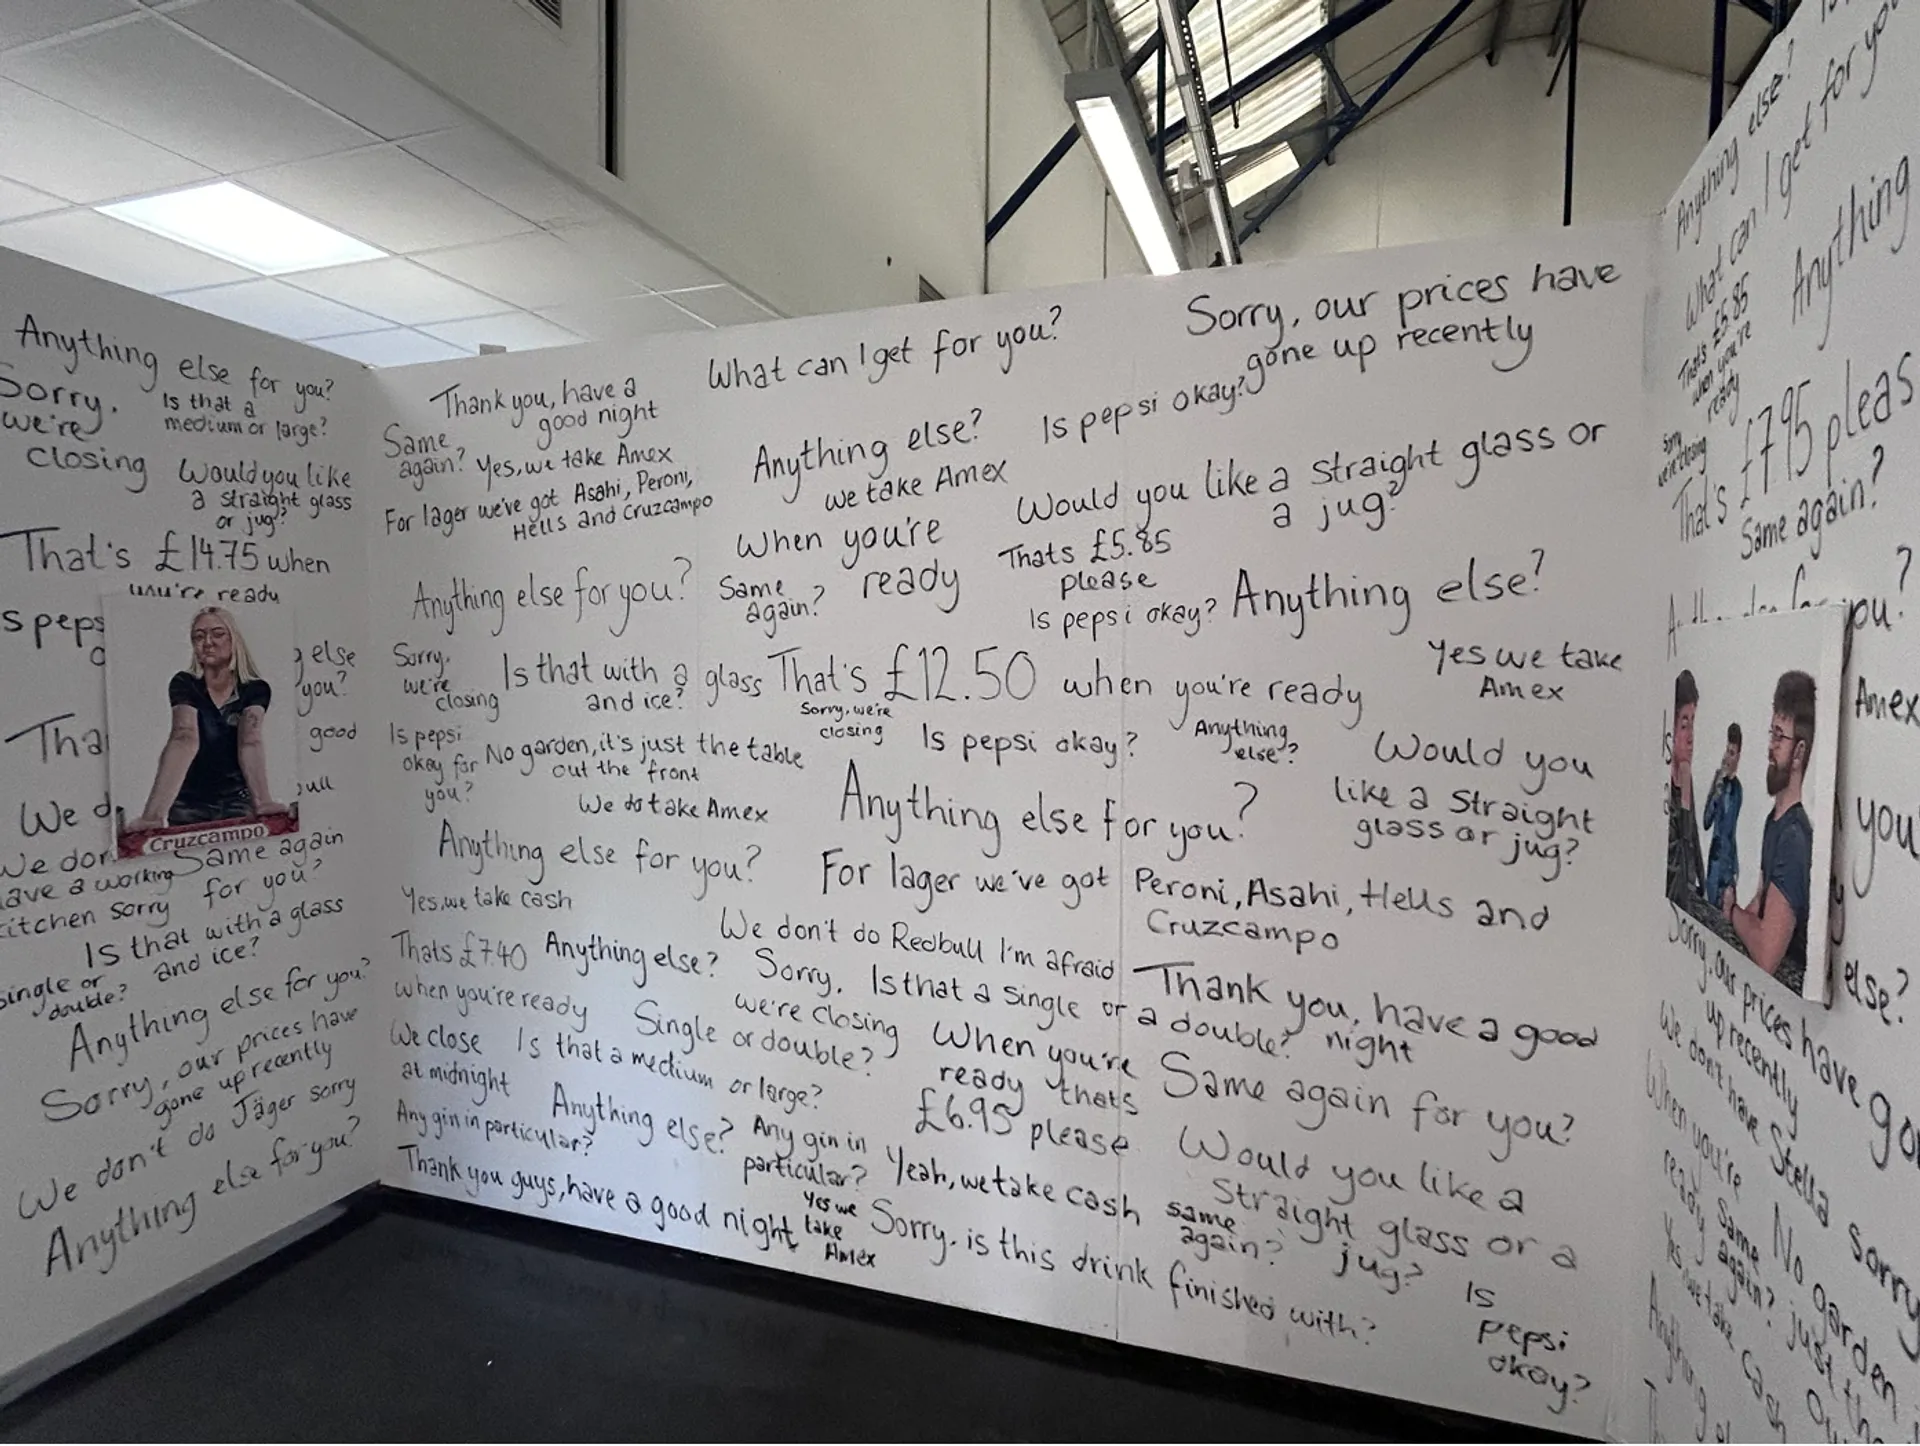 Anything else for you?
Sorry,
we're
closing
Is that a
medium or large?
Would you like
a straight glass
or jug?
That's £14.75 when
you're ready
else
you?
good
We
have a working
kitchen sorry
Same again
for you?
Is that with a glass
and ice?
single or
double?
Anything else for you?
Sorry, our prices have
gone up recently
We don't do Jäger sorry
Anything else for you?
Cruzcampo
Thank you, have a
good night
What can I get for you?
Sorry, our prices have
gone up recently
Same
again?
Yes, we take Amex
For lager we've got Asahi, Peroni,
Hells and Cruzcampo
Anything else?
we take Amex
Is pepsi okay?
Would you like a straight glass or
a jug?
When you're
ready
Thats £5.85
please
Anything else for you?
Same
again?
Is pepsi okay?
Anything else?
Sorry,
we're
closing
Is that with a glass
and ice?
That's £12.50 when you're ready
Yes we take
Amex
Sorry, we're
closing
Is pepsi
okay for
you?
No garden, it's just the table
out the front
Is pepsi okay?
Anything
else?
Would you
like a straight
glass or jug?
We do take Amex
Anything else for you?
Anything else for you?
For lager we've got Peroni, Asahi, Hells and
Cruzcampo
Yes, we take cash
We don't do Redbull I'm afraid
Thats £7.40
when you're ready
Anything else?
Sorry,
we're closing
Is that a single or
a double?
Thank you, have a good
night
Single or double?
When you're
ready thats
£6.95 please
We close
at midnight
Is that a medium or large?
Same again for you?
Any gin in particular?
Anything else?
Any gin in
particular?
Yeah, we take cash
Would you like a
straight glass or a
jug?
Thank you guys, have a good night
Yes we
take
Amex
Sorry, is this drink finished with?
same
again?
Is
pepsi
okay?
Anything else?
What can I get for you
That's £5.85
when you're
ready
Sorry
we're closing
Anything
That's £7.95
Same again?
you?
Amex
you
else?
Sorry, our prices have
up recently
We don't have Stella sorry
When you're
ready
Same
again?
No garden
just
Yes we take cash
Anything